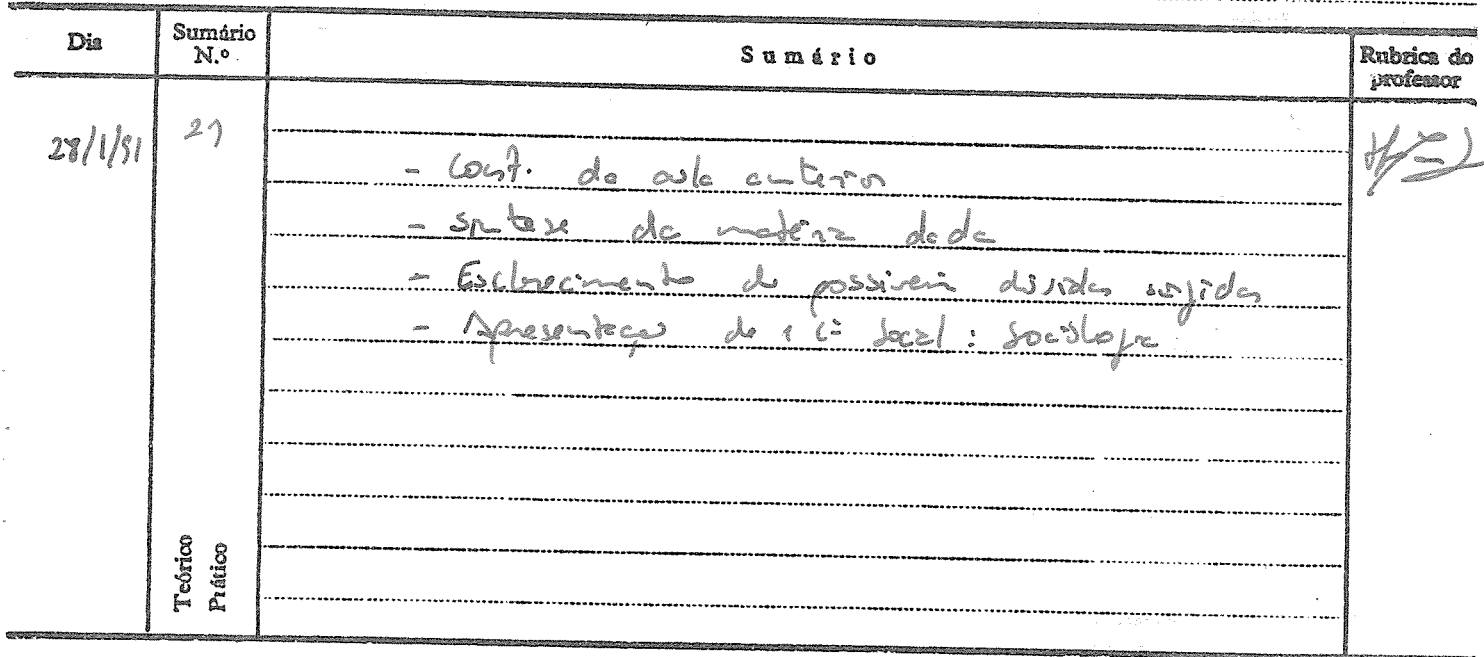 Dia Sumário N.º Sumário Rubrica do professor
28/1/91 21
- Cont. da aula anterior
- Síntese da matéria dada
- Esclarecimento de possíveis dúvidas surgidas
- Apresentação de 1 Cª Social: Sociologia
Teórico
Prático